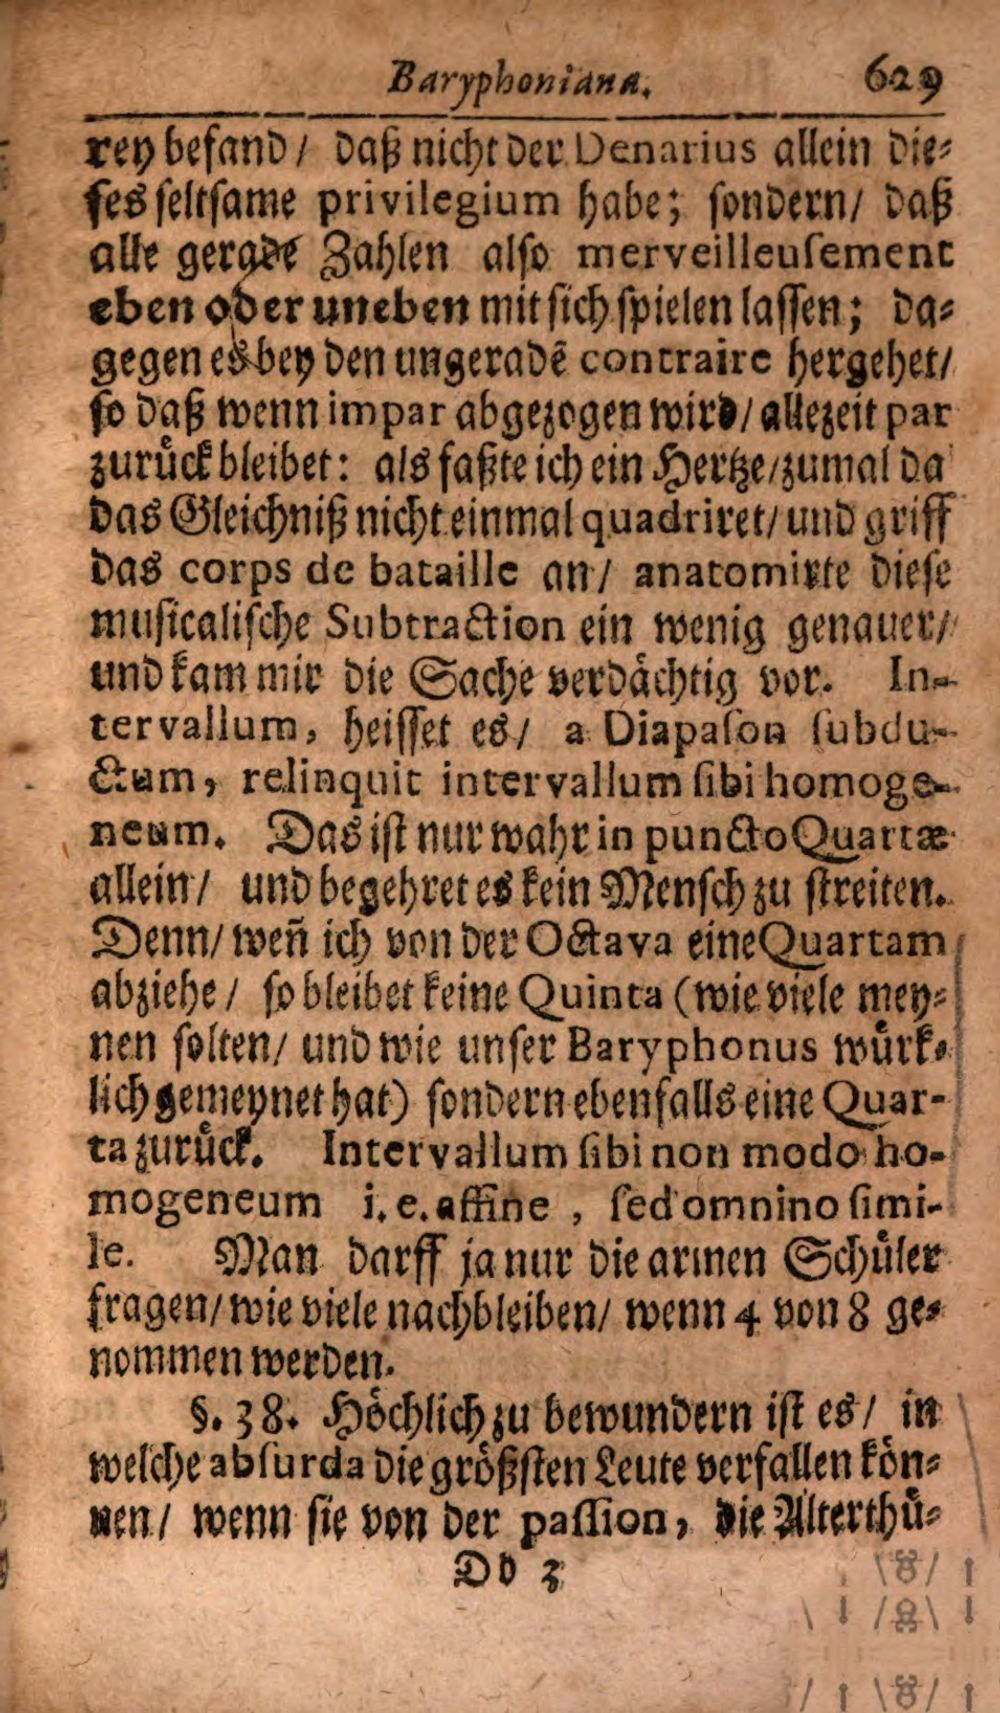 Baryphoniana. 629
rey befand / daß nicht der Denarius allein die⸗
ses seltsame privilegium habe; sondern / daß
alle gerade Zahlen also merveilleusement
eben oder uneben mit sich spielen lassen; da⸗
gegen es bey den ungeradẽ contraire hergehet /
so daß wenn impar abgezogen wird / allezeit par
zurück bleibet: als faßte ich ein Hertze / zumal da
das Gleichniß nicht einmal quadriret / und griff
das corps de bataille an / anatomirte diese
musicalische Subtraction ein wenig genauer /
und kam mir die Sache verdächtig vor. In-
tervallum, heisset es / a Diapason subdu-
ctum, relinquit intervallum sibi homoge-
neum. Das ist nur wahr in puncto Quartæ
allein / und begehret es kein Mensch zu streiten.
Denn / weñ ich von der Octava eine Quartam
abziehe / so bleibet keine Quinta (wie viele mey⸗
nen solten / und wie unser Baryphonus würk⸗
lich gemeynet hat) sondern ebenfalls eine Quar-
ta zurück. Intervallum sibi non modo ho-
mogeneum i. e. affine , sed omnino simi-
le. Man darff ja nur die armen Schüler
fragen / wie viele nachbleiben / wenn 4 von 8 ge⸗
nommen werden.
§. 38. Höchlich zu bewundern ist es / in
welche absurda die größsten Leute verfallen kön⸗
nen / wenn sie von der passion, die Alterthü⸗
Dd 3